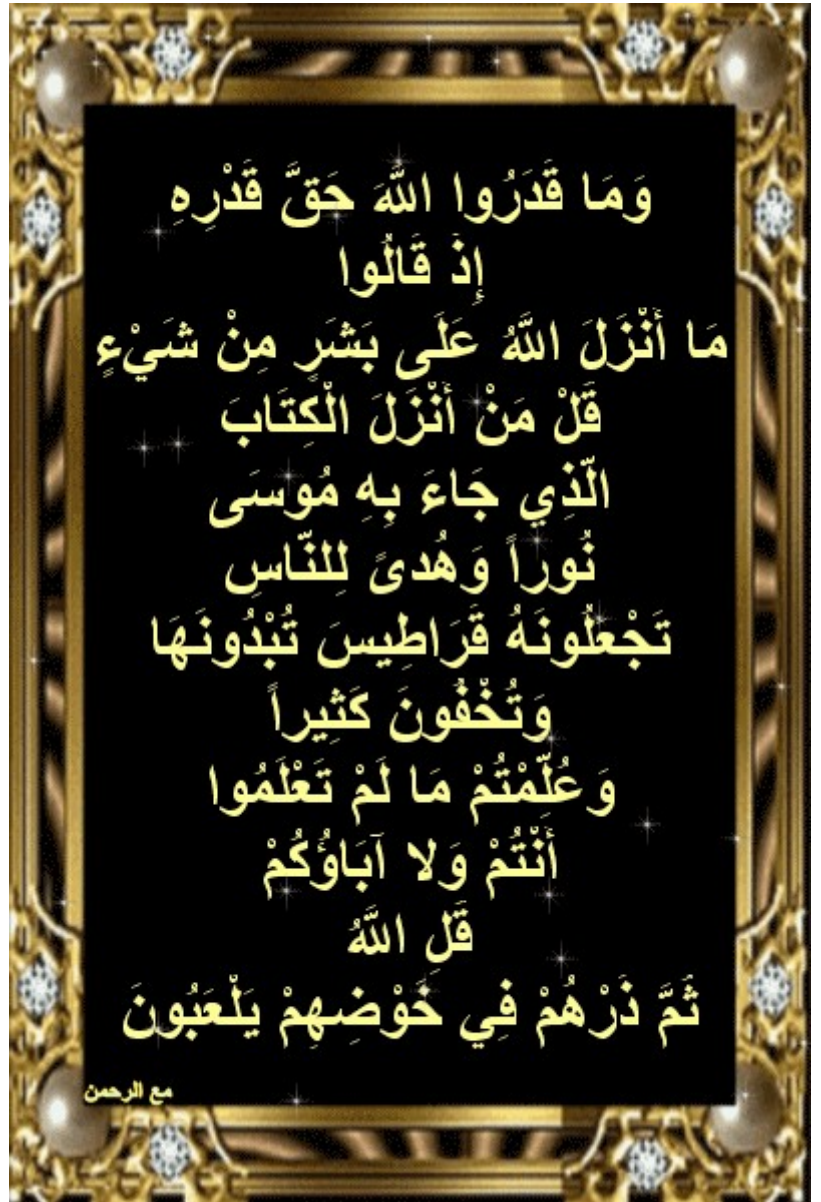 وَمَا قَدَرُوا اللَّهَ حَقَّ قَدْرِهِ
إِذْ قَالُوا
مَا أَنْزَلَ اللَّهُ عَلَى بَشَرٍ مِنْ شَيْءٍ
قُلْ مَنْ أَنْزَلَ الْكِتَابَ
الَّذِي جَاءَ بِهِ مُوسَى
نُوراً وَهُدىً لِلنَّاسِ
تَجْعَلُونَهُ قَرَاطِيسَ تُبْدُونَهَا
وَتُخْفُونَ كَثِيراً
وَعُلِّمْتُمْ مَا لَمْ تَعْلَمُوا
أَنْتُمْ وَلا آبَاؤُكُمْ
قُلِ اللَّهُ
ثُمَّ ذَرْهُمْ فِي خَوْضِهِمْ يَلْعَبُونَ
مع الرحمن